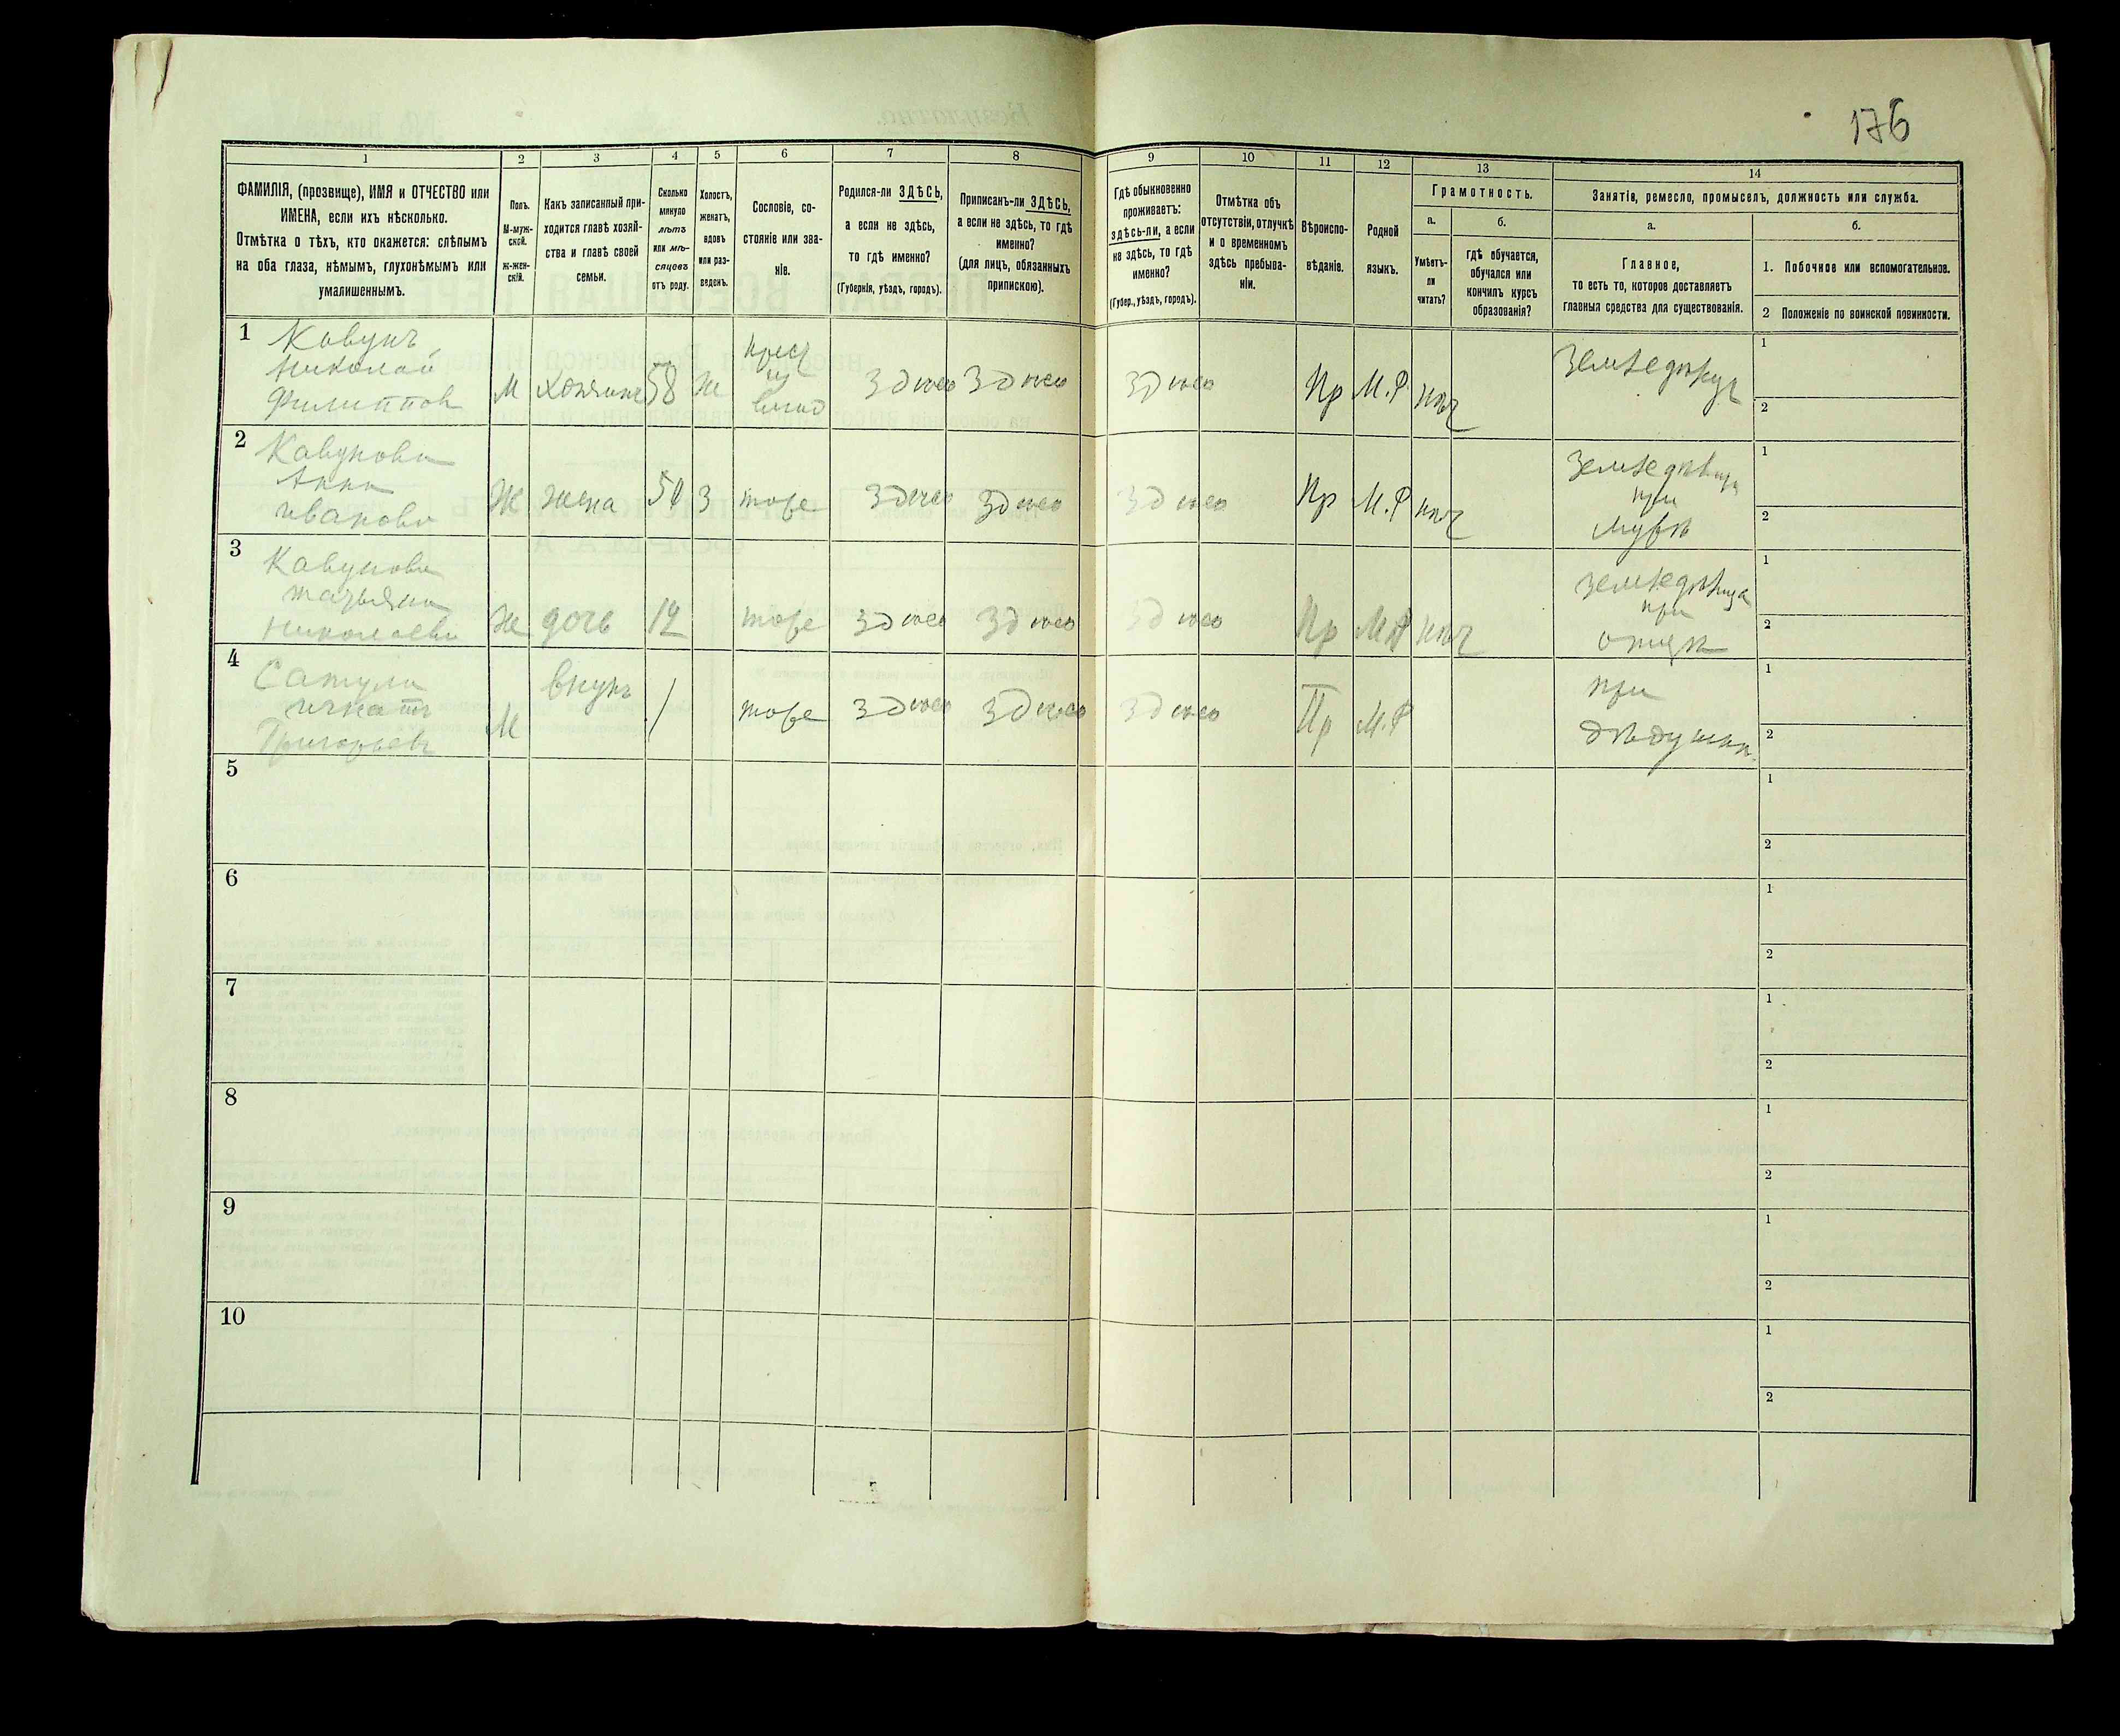 176
1 2 3 4 5 6 7 8 9 10 11 12 13 14
ФАМИЛІЯ, (прозвище), ИМЯ и ОТЧЕСТВО или
ИМЕНА, если ихъ нѣсколько.
Отмѣтка о тѣхъ, кто окажется: слѣпымъ
на оба глаза, нѣмымъ, глухонѣмымъ или
умалишеннымъ.
Полъ.
М-муж-
ской.
ж-жен-
скій.
Какъ записанный при-
ходится главѣ хозяй-
ства и главѣ своей
семьи.
Сколько
минуло
лѣтъ
или мѣ-
сяцевъ
отъ роду.
Холостъ,
женатъ,
вдовъ
или раз-
веденъ.
Сословіе, со-
стояніе или зва-
ніе.
Родился-ли ЗДѢСЬ,
а если не здѣсь,
то гдѣ именно?
(Губернія, уѣздъ, городъ).
Приписанъ-ли ЗДѢСЬ,
а если не здѣсь, то гдѣ
именно?
(для лицъ, обязанныхъ
припискою).
Гдѣ обыкновенно
проживаетъ:
здѣсь-ли, а если
не здѣсь, то гдѣ
именно?
(Губер., уѣздъ, городъ).
Отмѣтка объ
отсутствіи, отлучкѣ
и о временномъ
здѣсь пребыва-
ніи.
Вѣроиспо-
вѣданіе.
Родной
языкъ.
Грамотность.
а.
Умѣетъ-
ли
читать?
б.
гдѣ обучается,
обучался или
кончилъ курсъ
образованія?
Занятіе, ремесло, промыселъ, должность или служба.
а.
Главное,
то есть то, которое доставляетъ
главныя средства для существованія.
б.
1. Побочное или вспомогательное.
2 Положеніе по воинской повинности.
1
Кавунъ
Николай
Филиппов
М
хозяинъ
58
Ж
крест
из
влад
Здѣсь
Здѣсь
Здѣсь
Пр
М.Р
нѣт
Земледѣлец
1
2
2
Кавунова
Анна
Иванова
Ж
жена
50
З
тоже
Здѣсь
Здѣсь
Здѣсь
Пр
М.Р
нѣт
Земледѣлица
при
мужѣ
1
2
3
Кавунова
Татьяна
Николаева
Ж
дочь
12
тоже
Здѣсь
Здѣсь
Здѣсь
Пр
М.Р
нѣт
Земледѣлица
при
отцѣ
1
2
4
Григорьевъ
М
внукъ
1
тоже
Здѣсь
Здѣсь
Здѣсь
Пр
М.Р
при
дѣдушкѣ
1
2
5
1
2
6
1
2
7
1
2
8
1
2
9
1
2
10
1
2